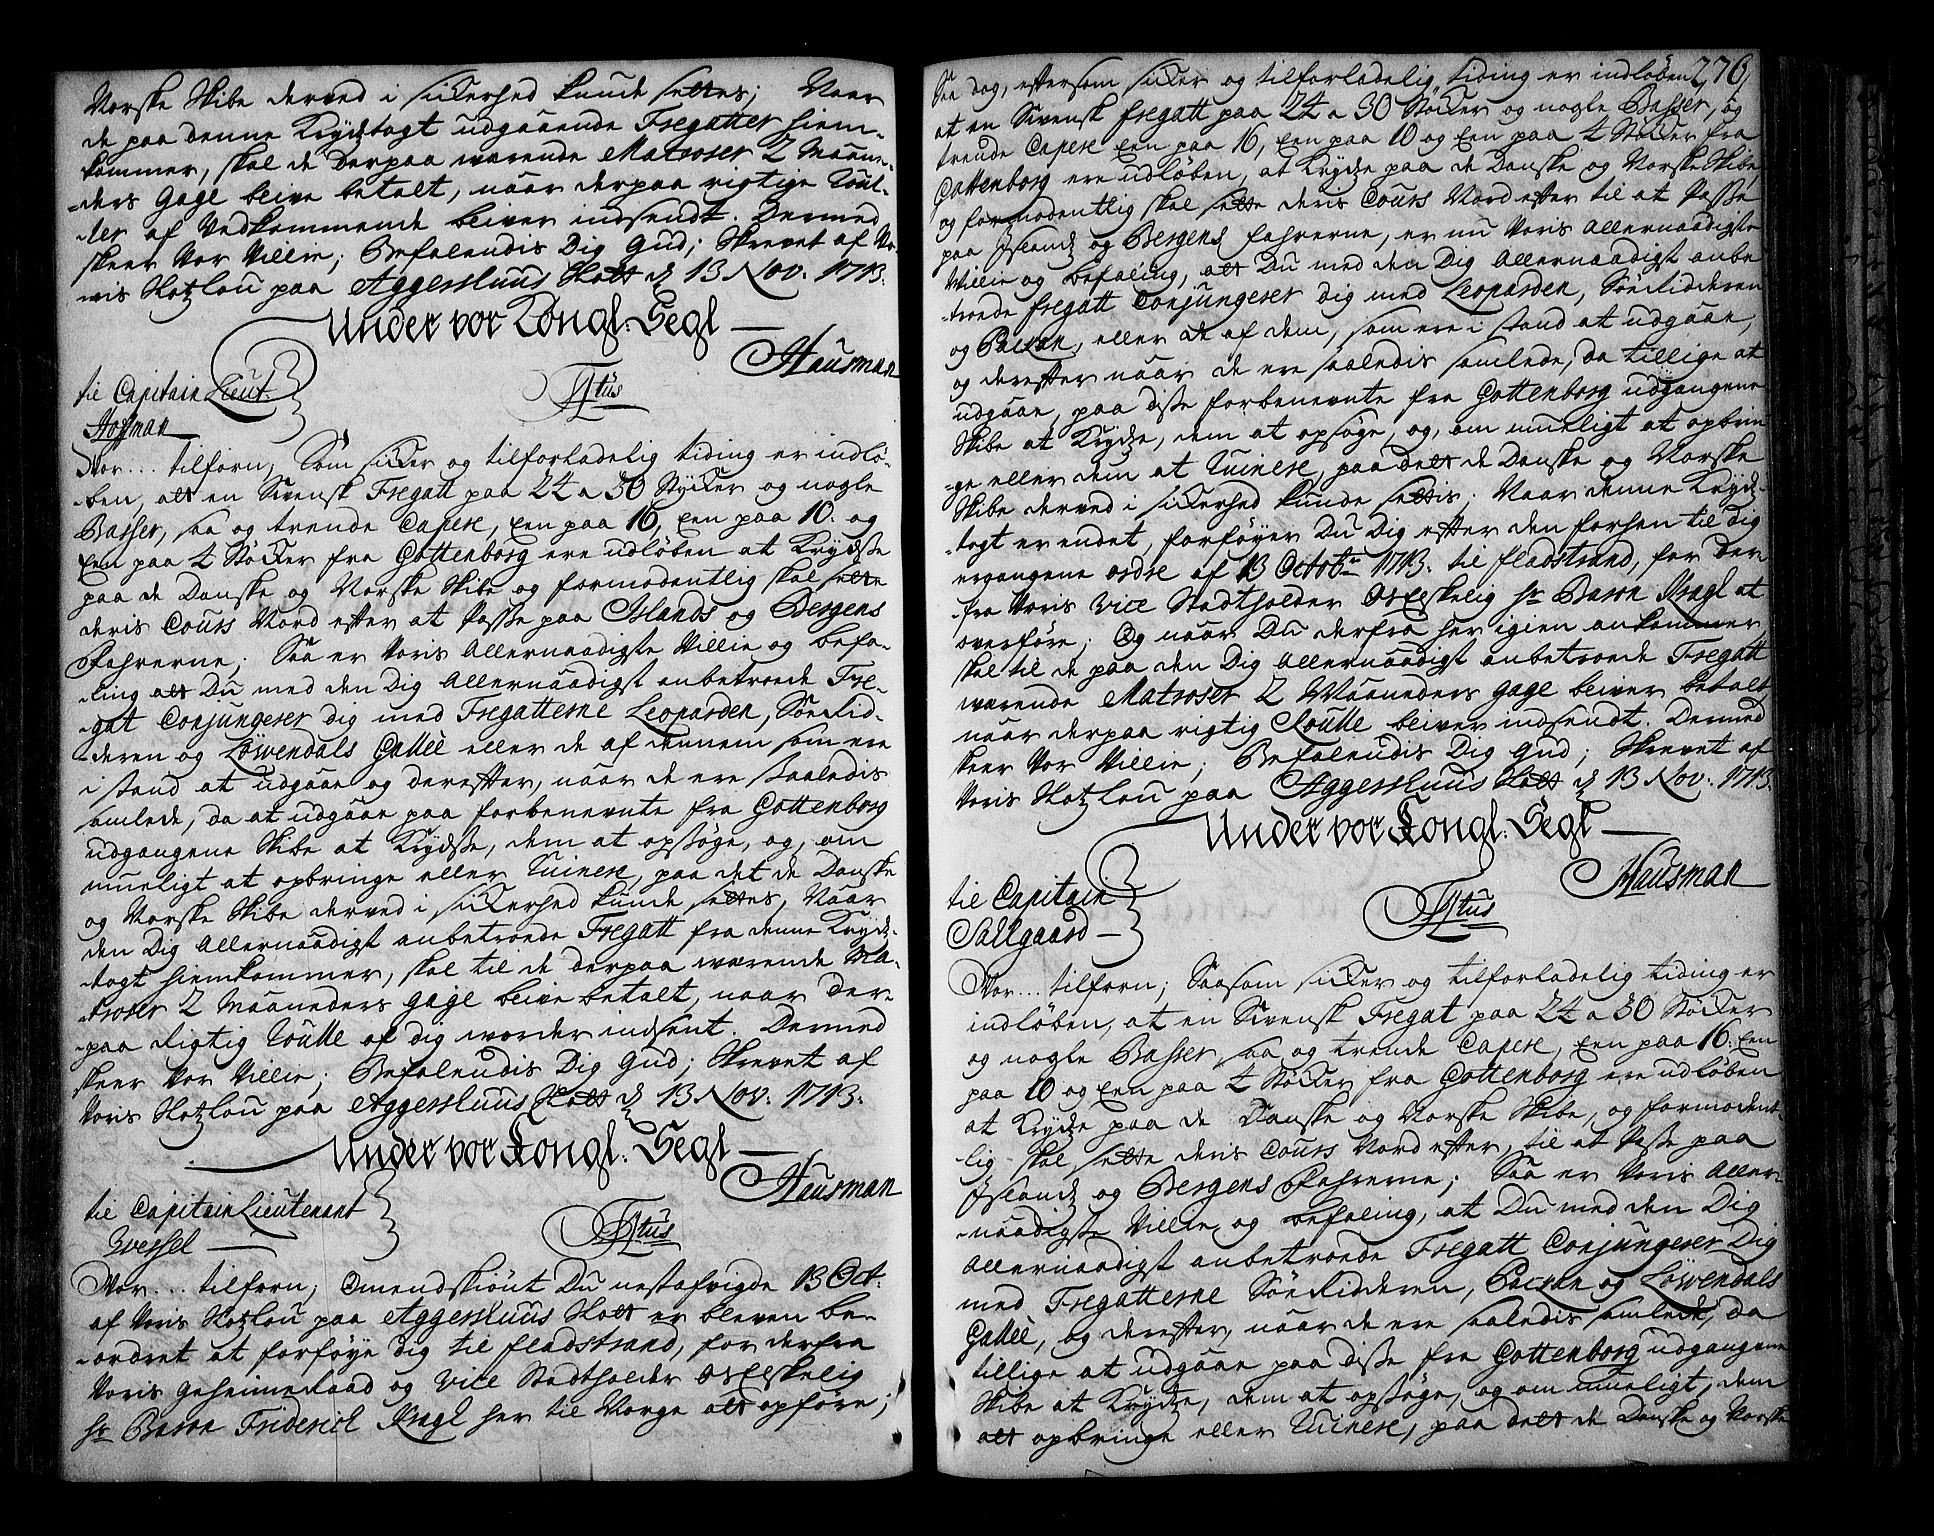 Norske Skibe derved i sickerhed kunde settes; Naar
de paa denne Krydstogt udgaaende Fregatter hiem-
kommer, skal de derpaa wærende Matroser 2 Maane-
-ders gage blive betalt, naar derpaa rigtige Roul-
-ler af Vedkommende bliver indsendt. Dermed
skeer Vor Villie; Befalendis Dig Gud; Skrevet af Vo-
ris Slotzlou paa Aggershuus Slott d 13 Nov. 1713.
Under vor Kongl: Segl
Hausman
til Capitain Lieut.
Hoffman
Tytus
Vor... tilforn; Som sicker og tilforladelig tiding er indlø-
ben, att en Svensk Fregatt paa 24 a 30 Stycker og nogle
Basser, saa og trende Capere, Een paa 16, Een paa 10. og
Een paa 4 Støcker fra Gottenborg ere udløben at Krydse
paa de Danske og Norske Skibe og formodentlig skal sette
deris Cours Nord efter at Passe paa Islands og Bergens
Fahrerne; Saa er Voris Allernaadigste Villie og befa-
-ling att Du med den Dig Allernaadigst anbetroede Fre-
-gat Conjungerer dig med Fregatterne Leoparden, Søe Rid-
-deren og Løwendals Gallei eller de af dennem som ere
i stand at udgaae og derefter, naar de ere saaledis
samlede, da at udgaae paa forbenevnte fra Gottenborg
udgangene Skibe at Krydse, dem at opsøge, og, om
mueligt at opbringe eller Ruinere, paa det de Danske
og Norske Skibe derved i sickerhed kunde settes, Naar
den Dig Allernaadigst anbetroede Fregatt fra denne Kryds-
-togt hiemkommer, skal til de derpaa wærende Ma-
-troser 2 Maaneders gage blive betalt, naar der-
-paa rigtig Roulle af dig worder indsent. Dermed
skeer Vor Villie; Befalendis Dig Gud; Skrevet af
Voris Slotzlou paa Aggershuus Slott d 13 Nov. 1713.
Under vor Kongl: Segl
Hausman
til Capitain Lieutenant
Wessel
Tytus
Vor... tilforn; Omendskiønt Du nestafvigde 13 Oct.
af Voris Slotzlou paa Aggershuus Slott er bleven be-
-ordret at forføye dig til Fladstrand, for derfra
Voris Geheimeraad og Vice Stadtholder Os Elskelig
Hr Baron Friderich Kragh her til Norge att opføre;
276,
Saa dog, eftersom sicker og tilforladelig tiding er indløben
at en Svensk Fregatt paa 24 a 30 Støcker og nogle Basser, og
trende Capere Een paa 16, Een paa 10 og Een paa 4 Støcker fra
Gottenborg ere udløben, at Krydse paa de Danske og Norske Skibe
og formodentlig skal sette deris Cours Nord efter til at Passe
paa Islands og Bergens Fahrerne, er nu Voris Allernaadigste
Villie og befaling, att Du med den Dig Allernaadigst anbe
-troede Fregatt Conjungerer dig med Leoparden, Søe Ridderen
og Pacran, eller de af dem, som ere i stand at udgaae,
og derefter naar de ere saaledis samlede, da tillige at
udgaae, paa disse forbenevnte fra Gottenborg udgangene
Skibe at Krydse, dem at opsøge, og, om mueligt at opbrin
-ge eller dem at Ruinere, paa dett de Danske og Norske
Skibe derved i sickerhed kunde settis. Naar denne Kryds-
-togt er endet, forføyer Du Dig efter den forhen til dig
ergangene ordre af 13 Octobr 1713. til Fladstrand, for der-
-fra Voris Vice Stadtholder Os Elskelig Hr Baron Kragh at
overføre; Og naar Du derfra her igien ankommer
skal til de paa den Dig Allernaadigst anbetroede Fregatt
wærende Matroser 2 Maaneders gage bliver betalt,
naar derpaa rigtig Roulle bliver indsendt. Dermed
skeer Vor Villie; Befalendis Dig Gud; Skrevet af
Voris Slotzlou paa Aggershuus Slott d 13 Nov. 1713.
Under vor Kongl: Segl
Hausman
til Capitain
Sallgaard
Tytus
Vor... tilforn; Saasom sicker og tilforladelig tiding er
indløben, at en Svensk Fregat paa 24 a 30 Støcker
og nogle Basser, saa og trende Capere, Een paa 16. Een
paa 10 og Een paa 4 Støcker fra Gottenborg ere udløben
at Krydse paa de Danske og Norske Skibe, og formodent
lig skal sette deris Cours Nord efter, til at Passe paa
Islands og Bergens Fahrerne; Saa er Voris Aller-
-naadigste Villie og befaling, at Du med den Dig
Allernaadigst anbetroede Fregatt Conjungerer Dig
med Fregatterne Søe Ridderen, Pacran og Løwendals
Gallei, og derefter, naar de ere saaledis samlede, da
tillige at udgaae paa disse fra Gottenborg udgangene
Skibe at Krydse, dem at opsøge, og om mueligt, dem
att opbringe eller Ruinere, paa dett de Danske og Norske